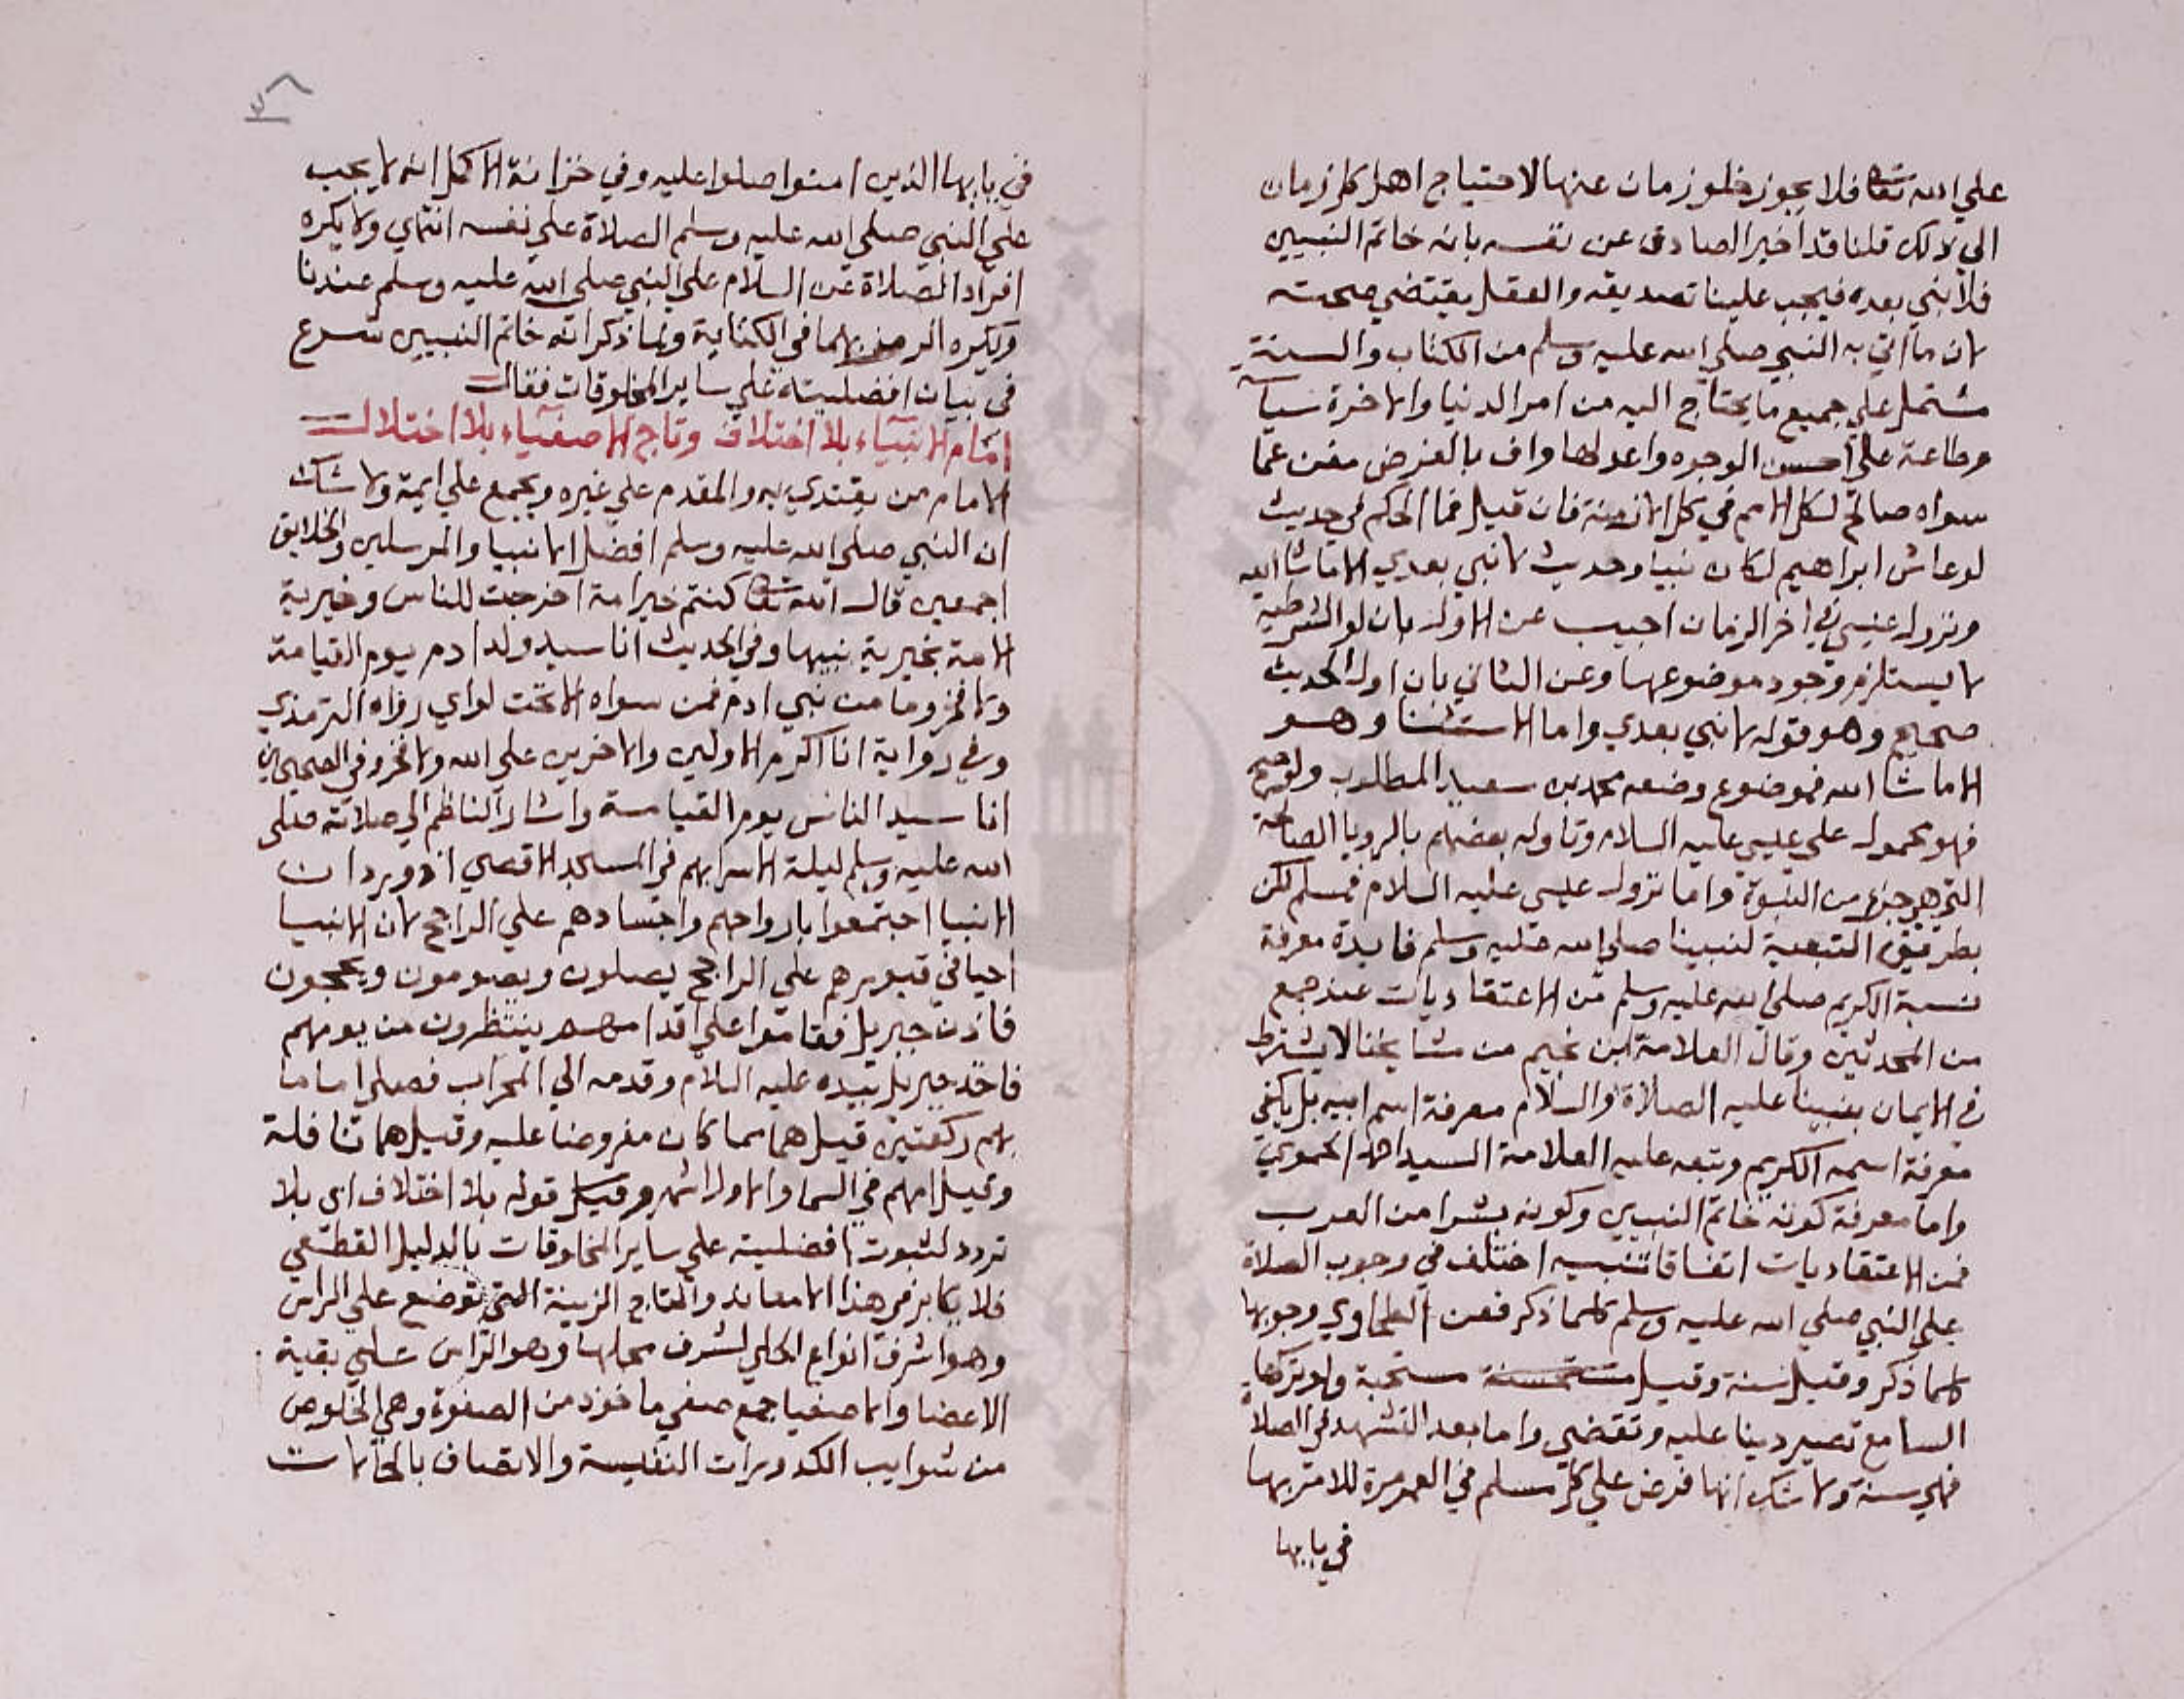 علي الله تعالى فلا يجوز خلو زمان عنها لاحتياج اهل كل زمان
الي ذلك قلنا قد اخبر الصادق عن نفسه بانه خاتم النبيين
فلا نبي بعده فيجب علينا تصديقه والعقل يقتضي صحته
لان ما اتي به النبي صلي الله عليه وسلم من الكتاب والسنة
مشتمل علي جميع ما يحتاج اليه من امر الدنيا والاخرة
وطاعة علي احسن الوجوه واعدلها واف بالغرض مغن عما
سواه صالح لكل الامم في كل الازمنة فان قيل فما الحكم في حديث
لو عاش ابراهيم لكان نبيا وحديث لا نبي بعدي الا ما شا الله
ونزول عيسي في اخر الزمان اجيب عن الاول بان لو الشرطية
لا يستلزم وجود موضوعها وعن الثاني بان اول الحديث
صحيح وهو قوله لا نبي بعدي واما الاستثنا وهو
الا ما شا الله فموضوع وضعه محمد بن سعيد المطلوب ولو صح
فهو محمول علي عيسي عليه السلام وتاوله بعضهم بالرويا الصالحة
التي هي جزء من النبوة واما نزول عيسي عليه السلام فمسلم لكن
بطريق التبعية لنبينا صلي الله عليه وسلم فايدة معرفة
نسبة الكريم صلي الله عليه وسلم من الاعتقاديات عند جمع
من المحدثين وقال العلامة ابن نجيم من مشايخنا لا يشترط
في الايمان بنبينا عليه الصلاة والسلام معرفة اسم ابيه بل يكفي
معرفة اسمه الكريم وتبعه عليه العلامة السيد احمد الحموي
واما معرفة كونه خاتم النبيين وكونه بشرا من العرب
فمن الاعتقاديات اتفاقا تنبيه اختلف في وجوب الصلاة
علي النبي صلي الله عليه وسلم كلما ذكر فعن الطحاوي وجوبها
كلما ذكر وقيل سنة وقيل مستحبة ولو تركها
السامع تصير دينا عليه وتقضي واما بعد التشهد في الصلاة
فهي سنة ولا شك انها فرض علي كل مسلم في العمر مرة للامر بها
في يا ايها
في يا ايها الذين امنوا صلوا عليه وفي خزانة الاكمل انه لا يجب
علي النبي صلي الله عليه وسلم الصلاة علي نفسه انتهي ولا يكره
افراد الصلاة عن السلام علي النبي صلي الله عليه وسلم عندنا
ويكره الرمز بهما في الكتابة ولما ذكر انه خاتم النبيين شرع
في بيان افضليته علي ساير المخلوقات فقال
امام الانبياء بلا اختلاف وتاج الاصفياء بلا اختلال
الامام من يقتدي به والمقدم علي غيره ويجمع علي ايمة ولا شك
ان النبي صلي الله عليه وسلم افضل الانبيا والمرسلين والخلايق
اجمعين قال الله تعالى كنتم خير امة اخرجت للناس وخيرية
الامة بخيرية نبيها وفي الحديث انا سيد ولد ادم يوم القيامة
ولا فخر وما من نبي ادم فمن سواه الا تحت لواي رواه الترمذي
وفي رواية انا اكرم الاولين والاخرين علي الله ولا فخر وفي الصحيحين
انا سيد الناس يوم القيامة واشار الناظم الي صلاته صلي
الله عليه وسلم ليلة الاسرا بهم في المسجد الاقصي اذ ورد ان
الانبيا اجتمعوا بارواحهم واجسادهم علي الراجح لان الانبيا
احيا في قبورهم علي الراجح يصلون ويصومون ويحجون
فاذن جبريل فقاموا علي اقدامهم ينتظرون من يومهم
فاخذ جبريل بيده عليه السلام وقدمه الي المحراب فصلي اماما
بهم ركعتين قيل هما مما كان مفروضا عليه وقيل هما نافلة
وقيل امهم في السما والاول اشهر وقيل قوله بلا اختلاف اي بلا
تردد لثبوت افضليته علي ساير المخلوقات بالدليل القطعي
فلا يكابر في هذا الا معاند والتاج الزينة التي توضع علي الراس
وهو اشرف انواع الحلي لشرف محلها وهو الراس علي بقية
الاعضا والاصفيا جمع صفي ماخوذ من الصفوة وهي الخلوص
من شوايب الكدورات النفيسة والاتصاف بالكمالات